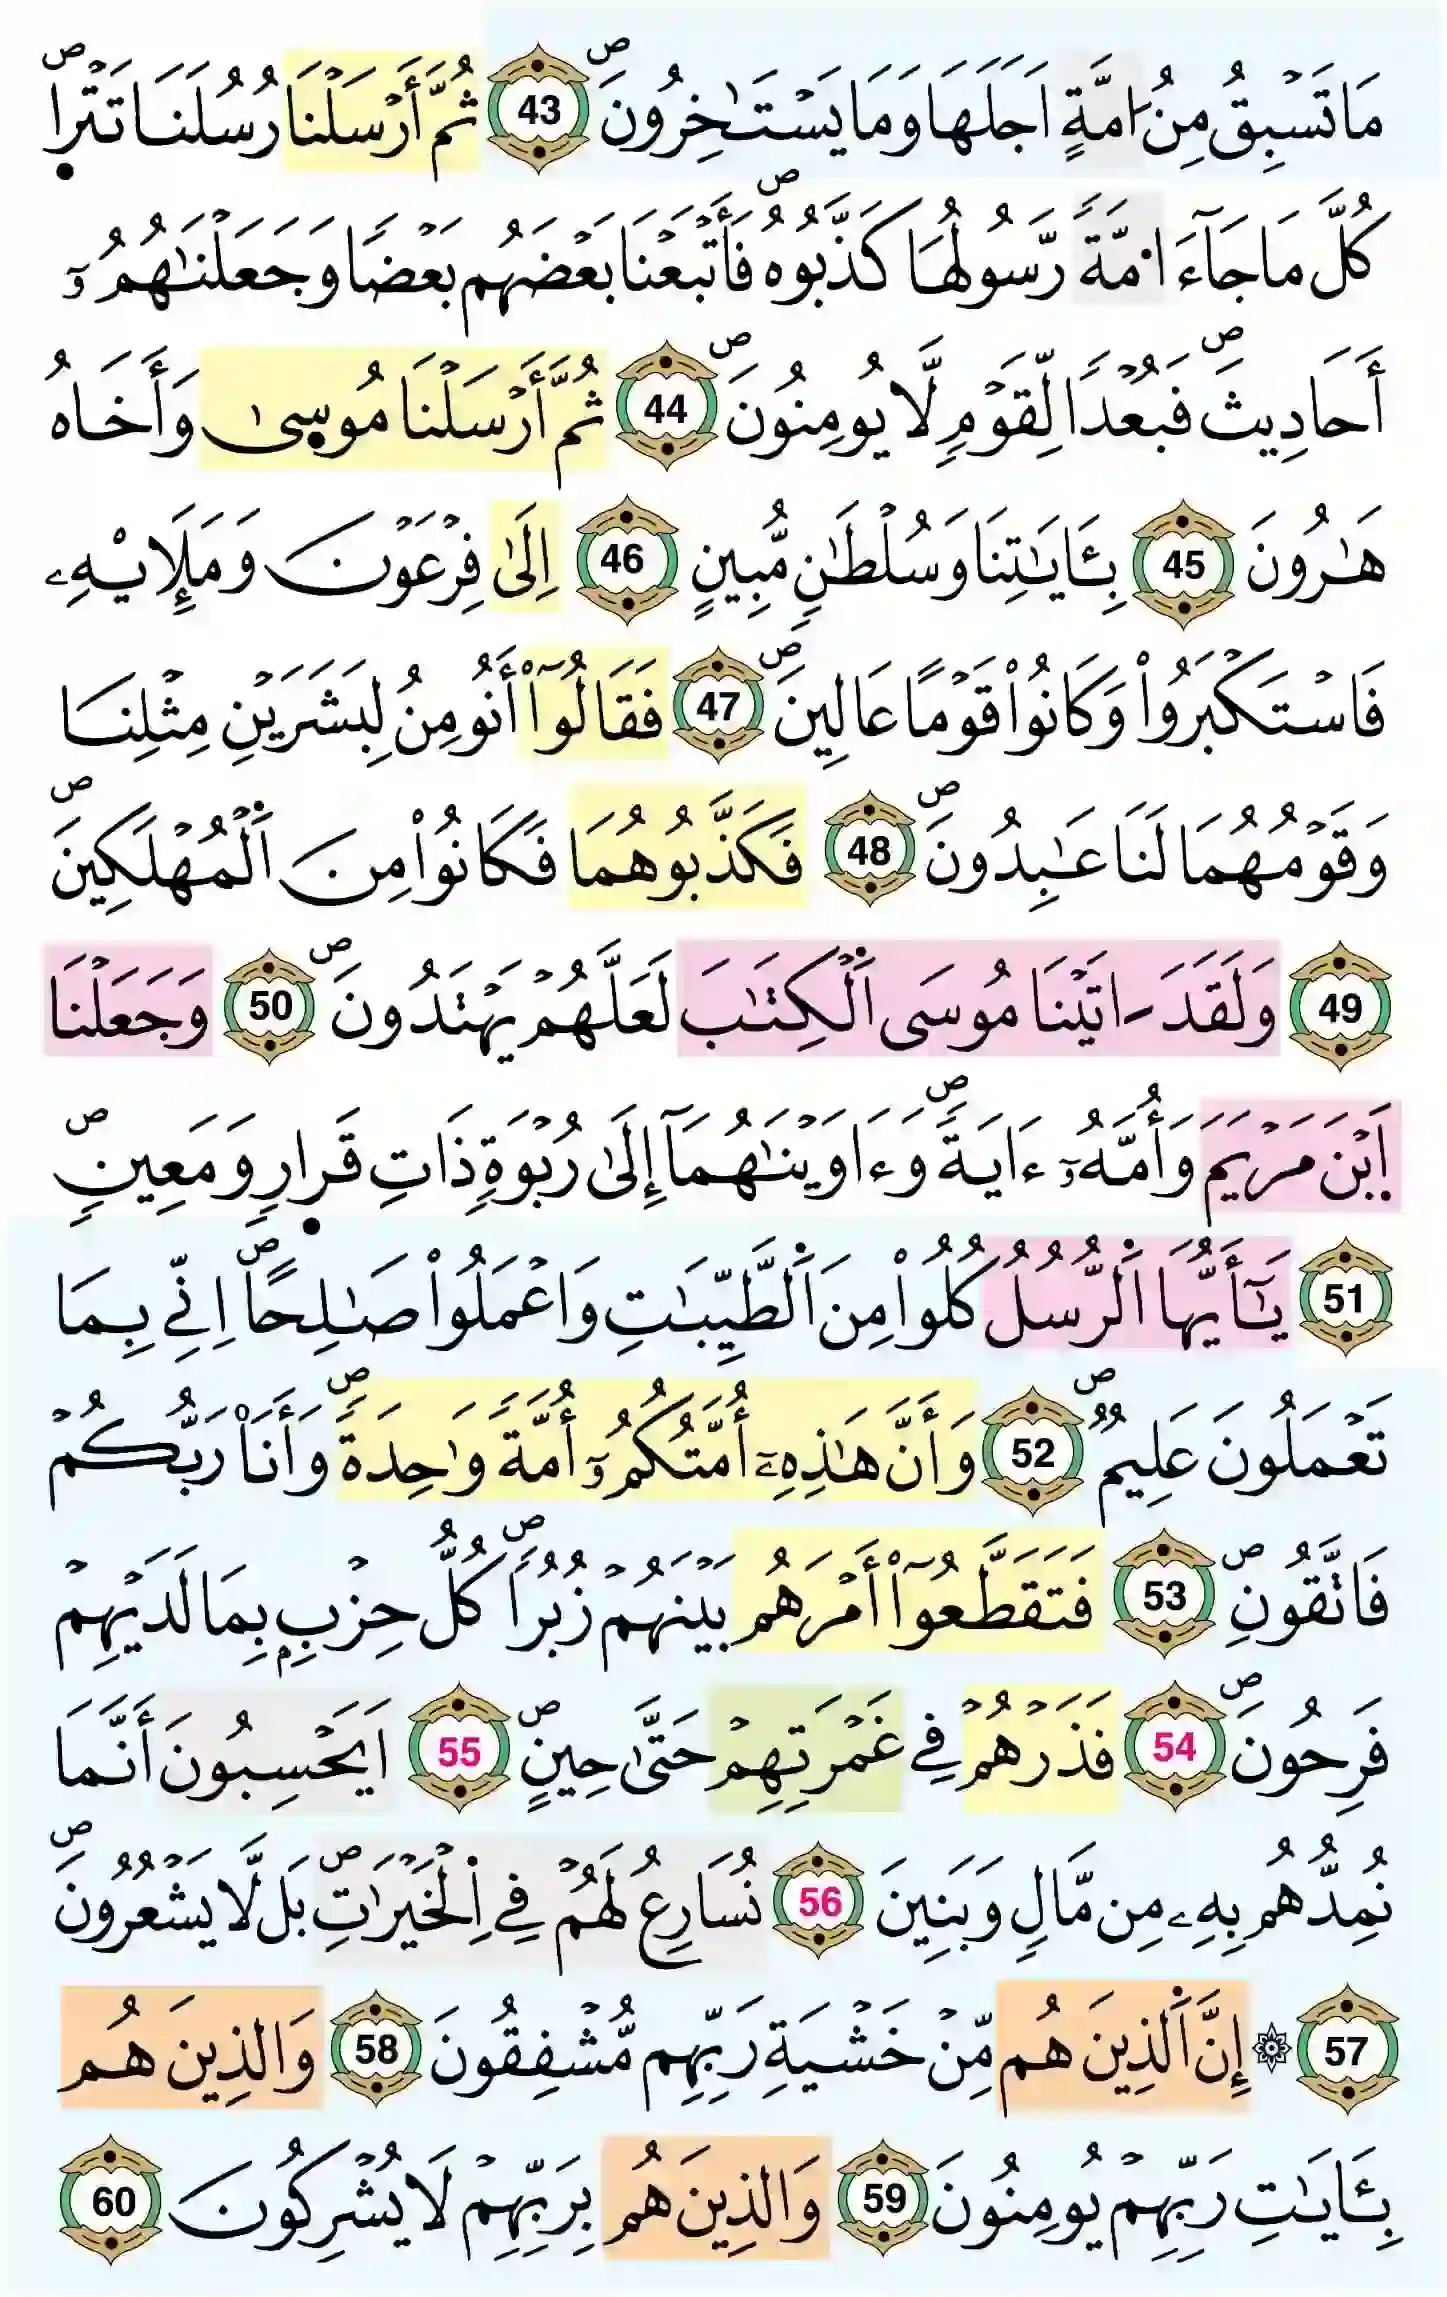 مَا تَسْبِقُ مِنُ امَّةٍ اَجَلَهَا وَمَا يَسْتَـٰخِرُونَۖ 43 ثُمَّ أَرْسَلْنَا رُسُلَنَا تَتْرٜاۖ
كُلَّ مَا جَآءَ امَّةٗ رَّسُولُهَا كَذَّبُوهُۖ فَأَتْبَعْنَا بَعْضَهُم بَعْضٗا وَجَعَلْنَـٰهُمُۥٓ
أَحَادِيثَۖ فَبُعْدٗا لِّقَوْمٖ لَّا يُومِنُونَۖ 44 ثُمَّ أَرْسَلْنَا مُوسٜىٰ وَأَخَاهُ
هَـٰرُونَ 45 بِـَٔايَـٰتِنَا وَسُلْطَـٰنٖ مُّبِينٍ 46 اِلَىٰ فِرْعَوْنَ وَمَلَإِيْهِۦ
فَاسْتَكْبَرُواْ وَكَانُواْ قَوْماً عَالِينَۖ 47 فَقَالُوٓاْ أَنُومِنُ لِبَشَرَيْنِ مِثْلِنَا
وَقَوْمُهُمَا لَنَا عَـٰبِدُونَۖ 48 فَكَذَّبُوهُمَا فَكَانُواْ مِنَ اَ۬لْمُهْلَكِينَۖ
49 وَلَقَدَ ـاتَيْنَا مُوسَى اَ۬لْكِتَـٰبَ لَعَلَّهُمْ يَهْتَدُونَۖ 50 وَجَعَلْنَا
اَ۪بْنَ مَرْيَمَ وَأُمَّهُۥٓ ءَايَةٗۖ وَءَاوَيْنَـٰهُمَآ إِلَىٰ رُبْوَةٖ ذَاتِ قَر۪ارٖ وَمَعِينٖۖ
51 يَـٰٓأَيُّهَا اَ۬لرُّسُلُ كُلُواْ مِنَ اَ۬لطَّيِّبَـٰتِ وَاعْمَلُواْ صَـٰلِحاًۖ اِنِّے بِمَا
تَعْمَلُونَ عَلِيمٞۖ 52 وَأَنَّ هَـٰذِهِۦٓ أُمَّتُكُمُۥٓ أُمَّةٗ وَٰحِدَةٗۖ وَأَنَا۠ رَبُّكُمْ
فَاتَّقُونِۖ 53 فَتَقَطَّعُوٓاْ أَمْرَهُم بَيْنَهُمْ زُبُراٗۖ كُلُّ حِزْبِۢ بِمَا لَدَيْهِمْ
فَرِحُونَۖ 54 فَذَرْهُمْ فِے غَمْرَتِهِمْ حَتَّىٰ حِينٍۖ 55 اَيَحْسِبُونَ أَنَّمَا
نُمِدُّهُم بِهِۦ مِن مَّالٖ وَبَنِينَ 56 نُسَارِعُ لَهُمْ فِے اِ۬لْخَيْرَٰتِۖ بَل لَّا يَشْعُرُونَۖ
57 ۞ إِنَّ اَ۬لذِينَ هُم مِّنْ خَشْيَةِ رَبِّهِم مُّشْفِقُونَ 58 وَالذِينَ هُم
بِـَٔايَـٰتِ رَبِّهِمْ يُومِنُونَ 59 وَالذِينَ هُم بِرَبِّهِمْ لَا يُشْرِكُونَ 60